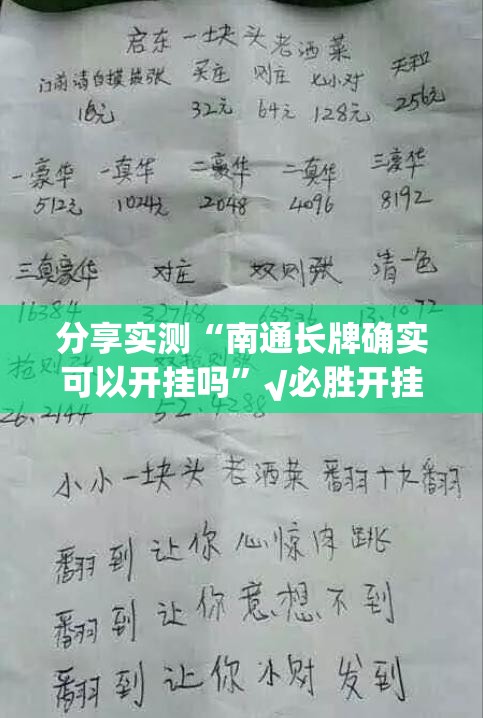 启东一块头老洒菜
门前清自摸独张 买庄 则庄 七小对 天和
16元 32元 64元 128元 256元
一豪华 一真华 二豪华 二真华 三豪华
512元 1024元 2048 4096 8192
三真豪华 对庄 双则张 清一色
16384 32768 65536 13.1072
分享实测“南通长牌确实
可以开挂吗”√必胜开挂
26.2144 52.4288
小小一块头 老洒菜 翻十九翻
翻到让你心惊肉跳
翻到让你意想不到
翻到让你小财发到